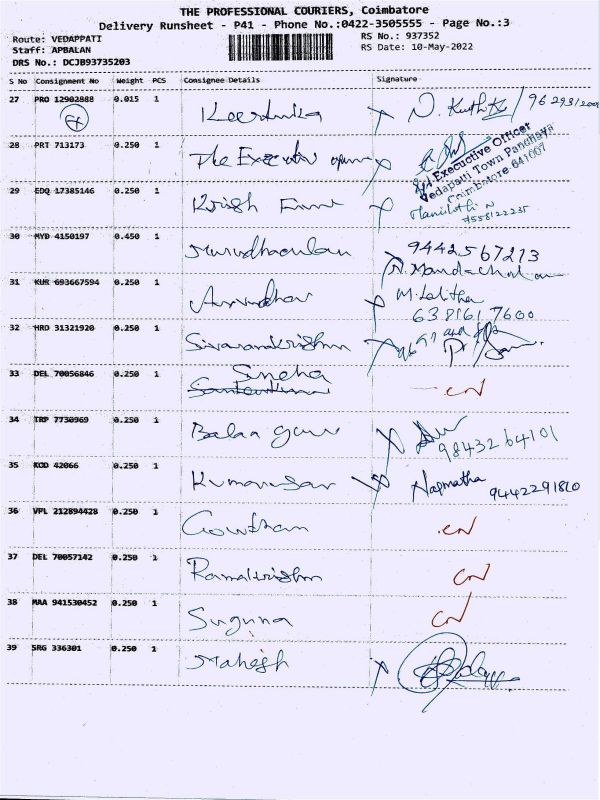 THE PROFESSIONAL COURIERS, Coimbatore
Delivery Runsheet - P41 - Phone No.:0422-3505555 - Page No.:3
Route: VEDAPPATI
Staff: APBALAN
DRS No.: DCJB93735203
RS No.: 937352
RS Date: 10-May-2022
S No Consignment No Weight PCS Consignee Details Signature
27 PRO 12902888 0.015 1 Keerthika
28 PRT 713173 0.250 1 The Executive
Executive Officer
Vedapatti Town Panchaya
Coimbatore 641007
29 EDQ 17385146 0.250 1 Krish
30 MYD 4150197 0.450 1 9442567213
31 KUR 693667594 0.250 1 M. Lalitha
638161 7600
32 HRD 31321920 0.250 1 Sivaramakrishnan
33 DEL 70056846 0.250 1 Sneha CN
34 TRP 7730969 0.250 1 Balaa
9843264101
35 KOD 42066 0.250 1
36 VPL 212894428 0.250 1 Gowtham CN
37 DEL 70057142 0.250 1 Ramakrishn CN
38 MAA 941530452 0.250 1 Suguna CN
39 SRG 336301 0.250 1 Mahesh